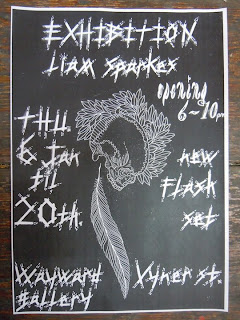 EXHIBITION
Liam Sparkes
opening
6-10pm
THU.
6 Jan
til
20th.
new
Flash
set
Wayward
Gallery
Vyner st.